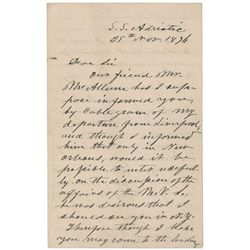 S.S. Adriatic
25th Nov. 1876
Dear Sir
Our friend Mr.
McAllum has I sup-
pose informed you
by Cablegram of my
departure from Liverpool,
and though I informed
him that only in New
Orleans, would it be
possible to enter useful-
ly on the discussion of the
affairs of the
he was desirous that I
should see you in N.Y.
Therefore though I hope
you may come to the landing